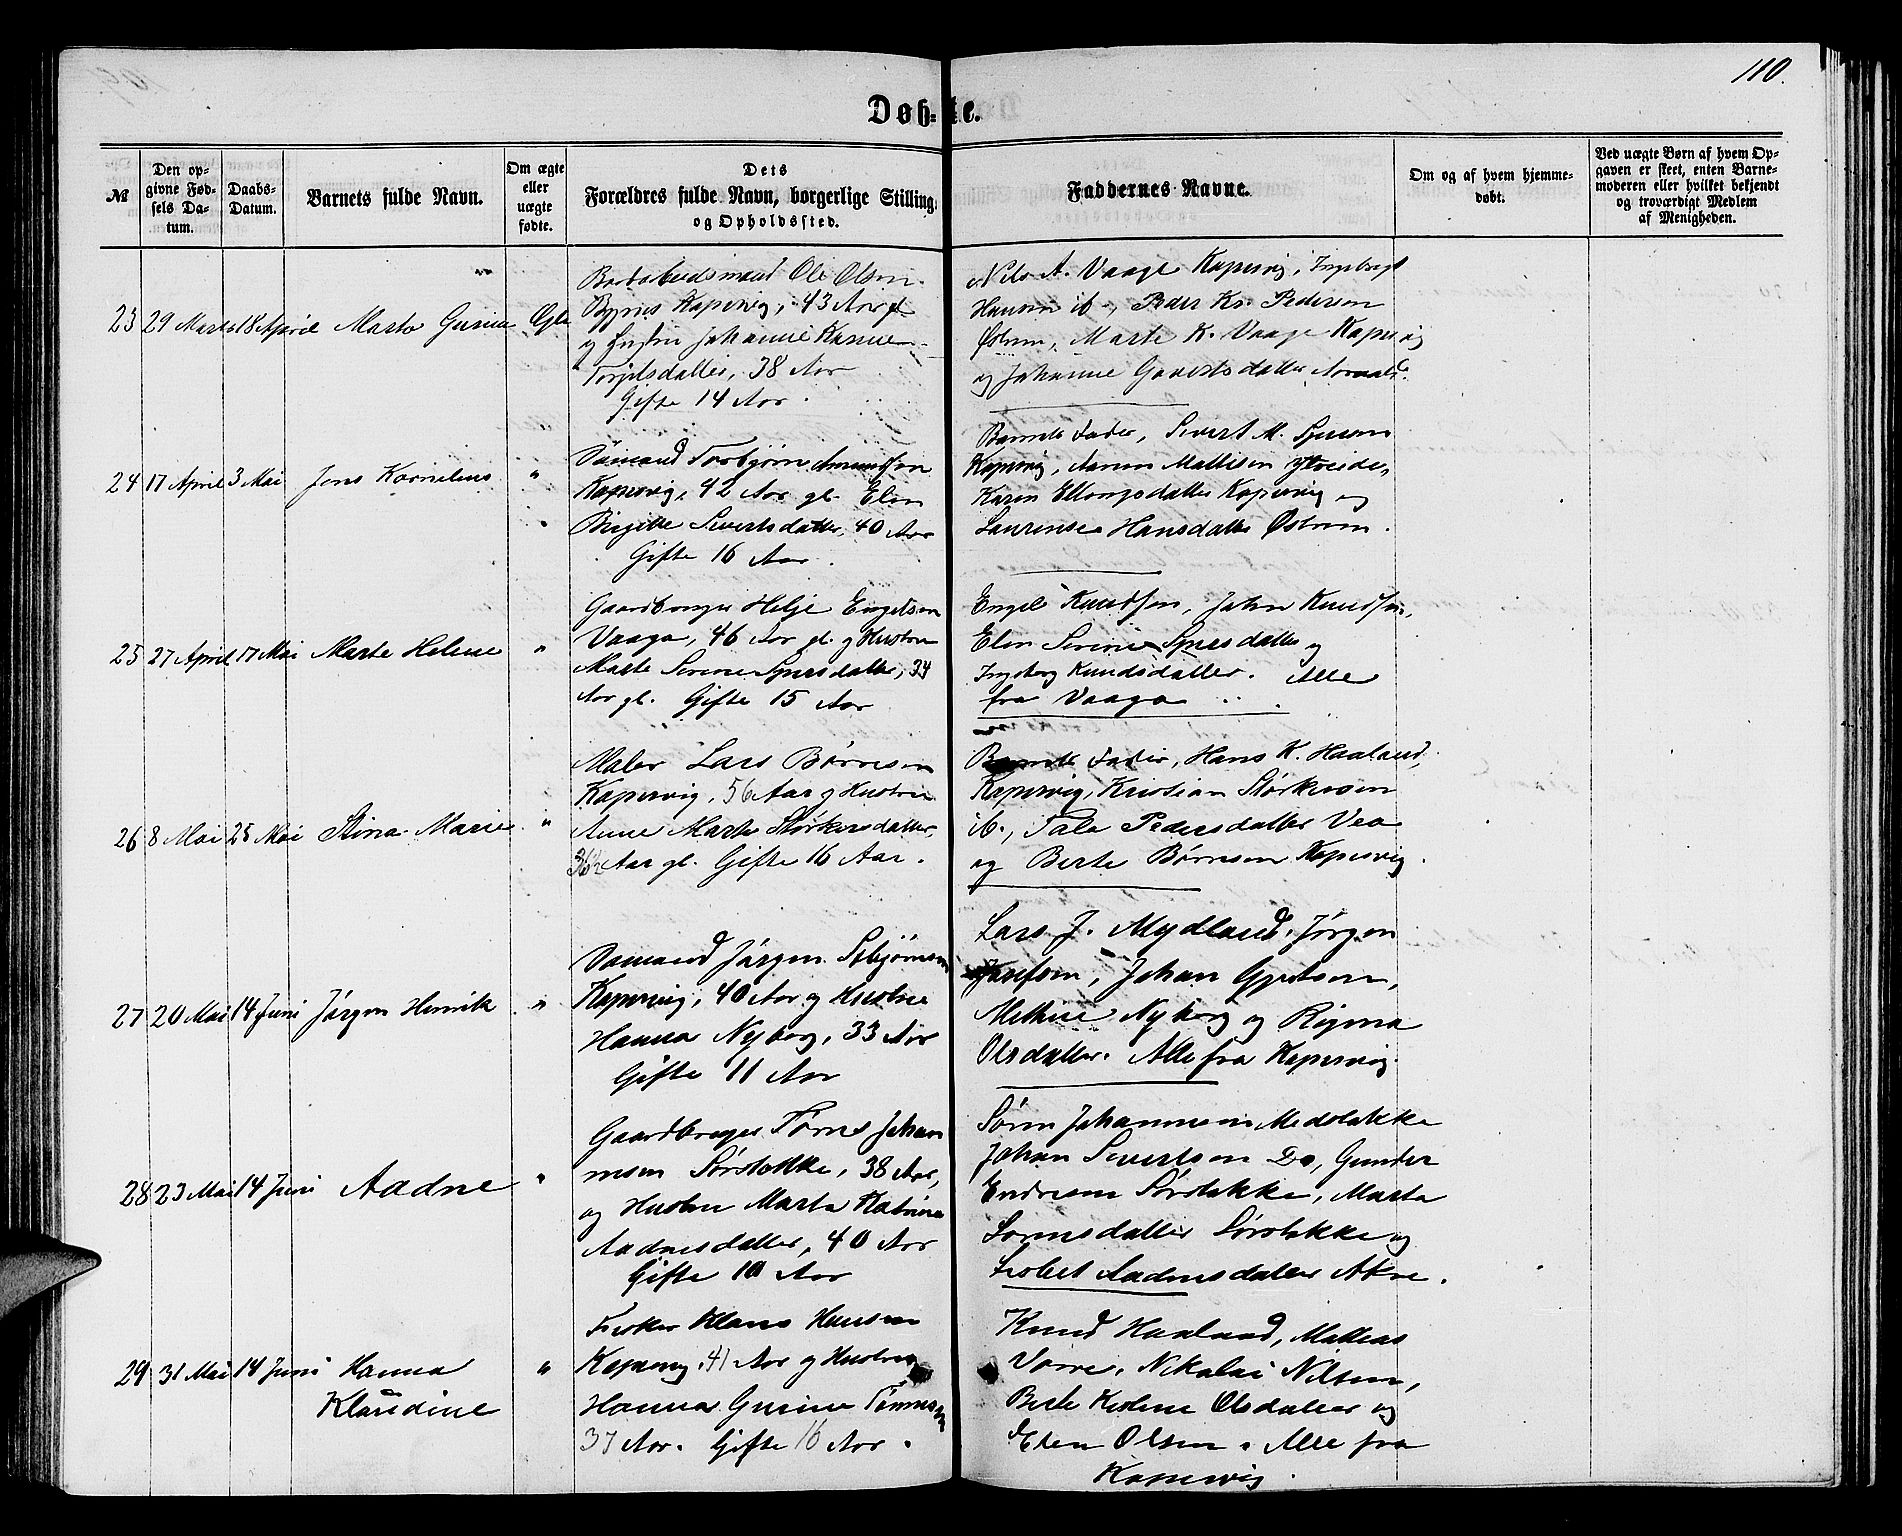 110.
Døb- te.
№
Den op-
givne Fød-
sels Da-
tum.
Daabs-
Datum.
Barnets fulde Navn.
Om ægte
eller
uægte
fødte.
Dets
Forældres fulde Navn, borgerlige Stilling,
og Opholdssted.
Faddernes Navne.
Om og af hvem hjemme-
døbt.
Ved uægte Børn af hvem Op-
gaven er skeet, enten Barne-
moderen eller hvilket bekjendt
og troværdigt Medlem
af Menigheden.
23 29 Marts 18 April Marta Gurine Ægte
Ole Olsen
Kopervig, 43 Aar gl
og Johanne Karine
38 Aar
Gifte 14 Aar.
Nils A. Vaage Kopervig, Ingebregt
Hansen ib., Peder Kr. Pedersen
Østrem, Marte K. Vaage Kopervig
og Johanne Govertsdatter
24 17 April 3 Mai Jens Kornelius "
Sømand Torbjørn Amundsen
Kopervig, 42 Aar gl. Elen
Birgitte Sivertsdatter, 40 Aar
Gifte 16 Aar.
Barnets Fader, Sivert M.
Kopervig, Mattisen
Karen Kopervig og
Laurense Hansdatter Østrem.
25 27 April 17 Mai Marte Helene "
Gaardbruger Helje Engelsen
Vaaga, 46 Aar gl. og Hustru
Marte Serine Sjursdatter, 34
Aar gl. Gifte 15 Aar
Engel Knudsen, John Knudsen,
Elen Serine Sjursdatter og
Ingeborg Knudsdatter. Alle
fra Vaaga
26 8 Mai 25 Mai Stina Marie "
Maler Lars Børnesen
Kopervig, 56 Aar og Hustru
Anne Marte Størkersdatter,
36½ Aar gl. Gifte 16 Aar.
Barnets Fader, Hans K. Haaland,
Kopervig, Kristian Størkersen
ib., Tale Pedersdatter Vea
og Berte Børnesen Kopervig.
27 20 Mai 14 Juni Jørgen Henrik "
Sømand Jørgen
Kopervig, 40 Aar og Hustru
Hanna Nyborg, 33 Aar
Gifte 11 Aar
Lars J. Mydland, Jørgen
Josefsen, Johan
Methine Nyborg og Regina
Olsdatter. Alle fra Kopervig.
28 23 Mai 14 Juni Aadne "
Gaardbruger Tørres Johan
nesen Sørstokke, 38 Aar,
og Hustru Marta Katrina
Aadnesdatter, 40 Aar
Gifte 10 Aar
Søren Johannesen Medstokke
Johan Sivertsen Do, Gunder
Endresen Sørstokke, Marta
Sørensdatter Sørstokke og
Lisbet Aadnesdatter Akre.
29 31 Mai 14 Juni Hanna
Klaudine "
Fisker Klaus Hansen
Kopervig, 41 Aar og Hustru
Hanna Gurine Tønnesen
37 Aar. Gifte 16 Aar.
Knud Haaland, Mathias
Vorre, Nikolai Nilsen,
Berte Olsdatter og
Elen Olsen. Alle fra
Kopervig.